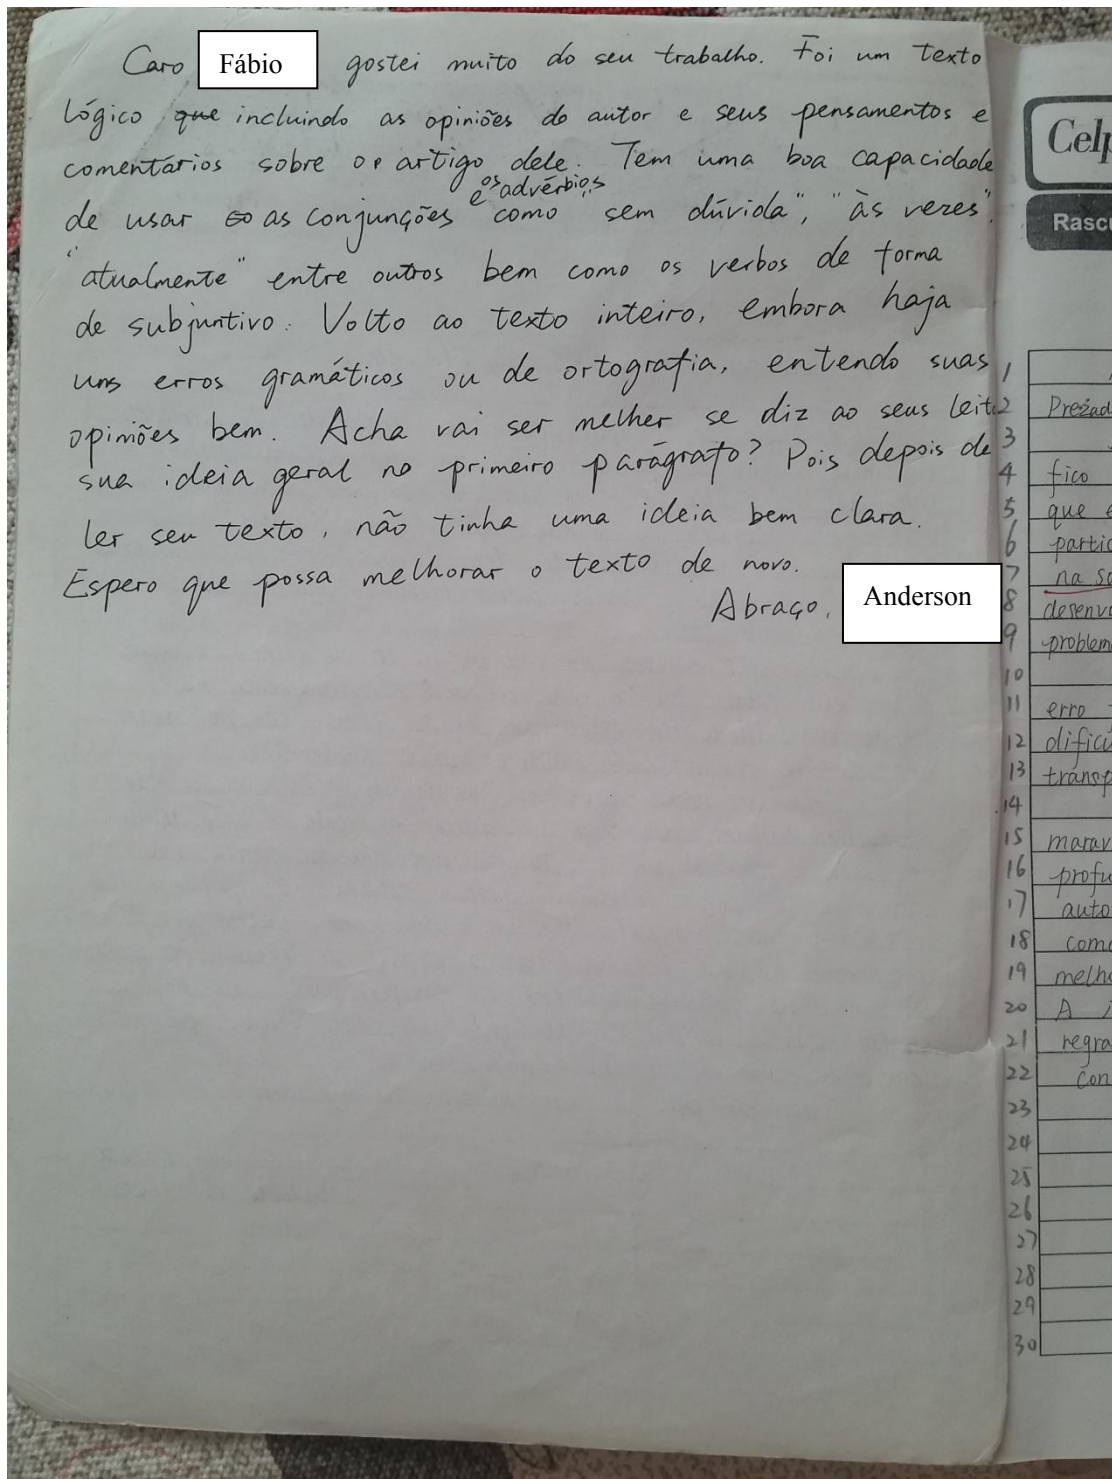 Caro Fábio gostei muito do seu trabalho. Foi um texto
lógico que incluindo as opiniões do autor e seus pensamentos e
comentários sobre o artigo dele. Tem uma boa capacidade
e os advérbios
de usar as conjunções como "sem dúvida", "às vezes",
"atualmente" entre outros bem como os verbos de forma
de subjuntivo. Volto ao texto inteiro, embora haja
uns erros gramáticos ou de ortografia, entendo suas
opiniões bem. Acha vai ser melher se diz ao seus leito
sua ideia geral no primeiro parágrafo? Pois depois de
ler seu texto, não tinha uma ideia bem clara.
Espero que possa melhorar o texto de novo.
Abraço, Anderson
Celp
Rascu
1
2 Prezad
3
4 fico
5 que e
6 partic
7 na so
8 desenvo
9 problem
10
11 erro
12 dificu
13 transp
14
15 marav
16 profu
17 auto
18 como
19 melho
20 A i
21 regra
22 con
23
24
25
26
27
28
29
30